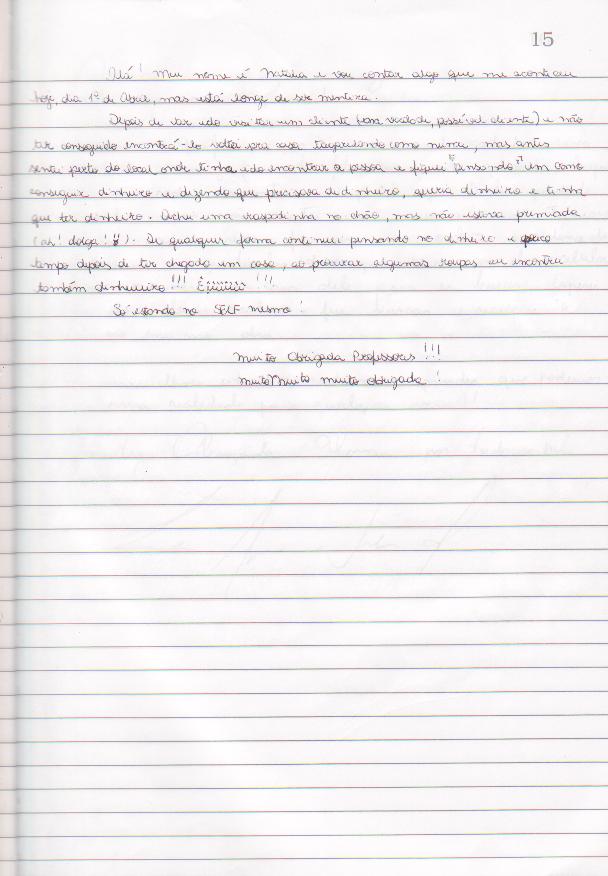 15
Olá! Meu nome é Natália e vou contar algo que me aconteceu
hoje, dia 1º de Abril, mas está longe de ser mentira.
Depois de ter ido visitar um cliente (na verdade, possível cliente) e não
ter conseguido encontrá-lo voltei pra casa tagarelando como nunca, mas antes
sentei perto do local onde tinha ido encontrar a pessoa e fiquei "pensando" em como
conseguir dinheiro e dizendo que precisava de dinheiro, queria dinheiro e tinha
que ter dinheiro. Achei uma raspadinha no chão, mas não estava premiada
(ah! dolga!). De qualquer forma continuei pensando no dinheiro e pouco
tempo depois de ter chegado em casa, ao procurar algumas roupas eu encontrei
também dinheiro!!! Êiiiiiii !!!
Só estando no SELF mesmo!
Muito Obrigada Professores!!!
muito Muito muito obrigada!